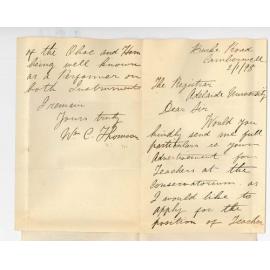 Road
Camberwell
2/1/98
The Registrar
Adelaide University
Dear Sir
Would you
kindly send me full
particulars re your
Advertisement for
Teachers at the
Conservatorium as
I would like to
apply for the
position of Teacher
of the Oboe and Horn
being well known
as a Performer on
both Instruments
I remain
Yours truly
Wm C. Thomson